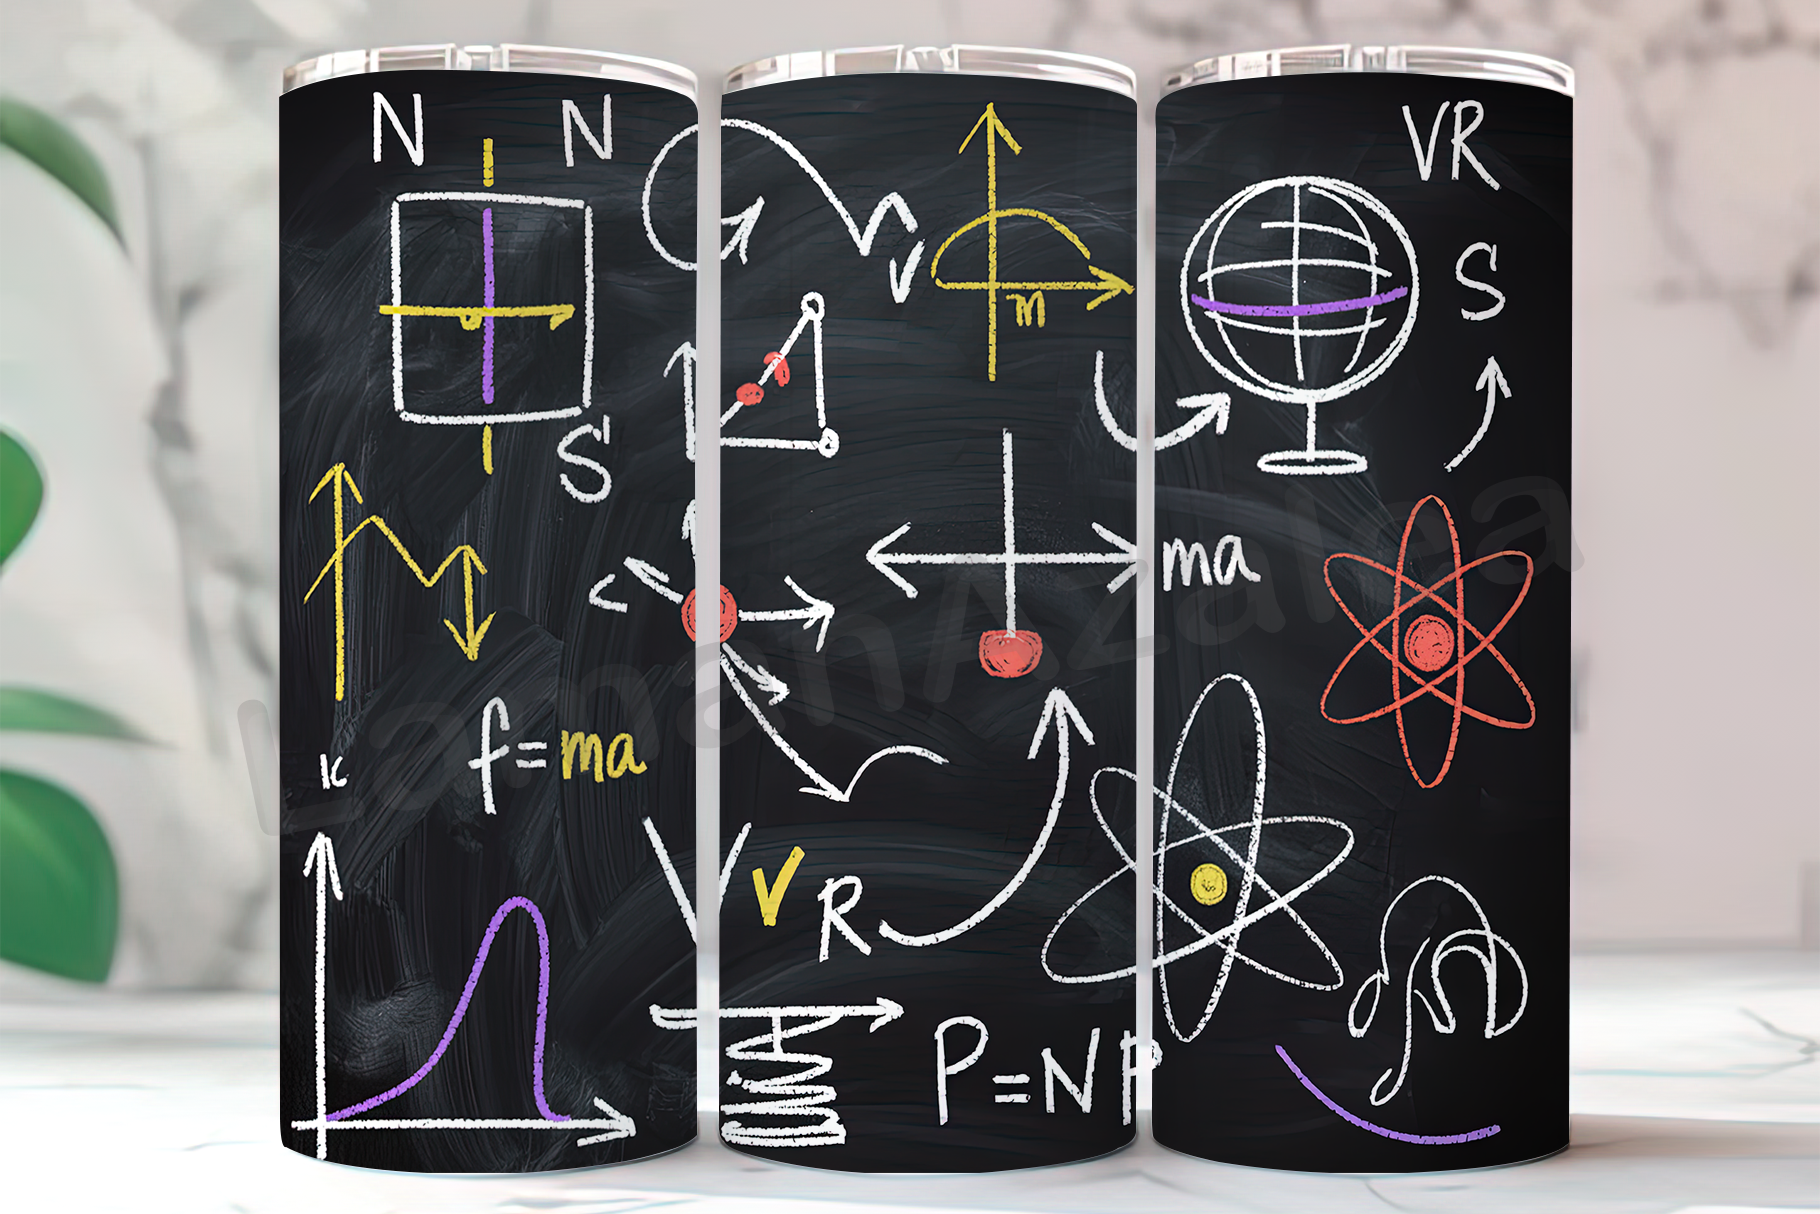 N N
VR
S
m
S
ma
f=ma
K
V V R
P=NP
LamanAzalea